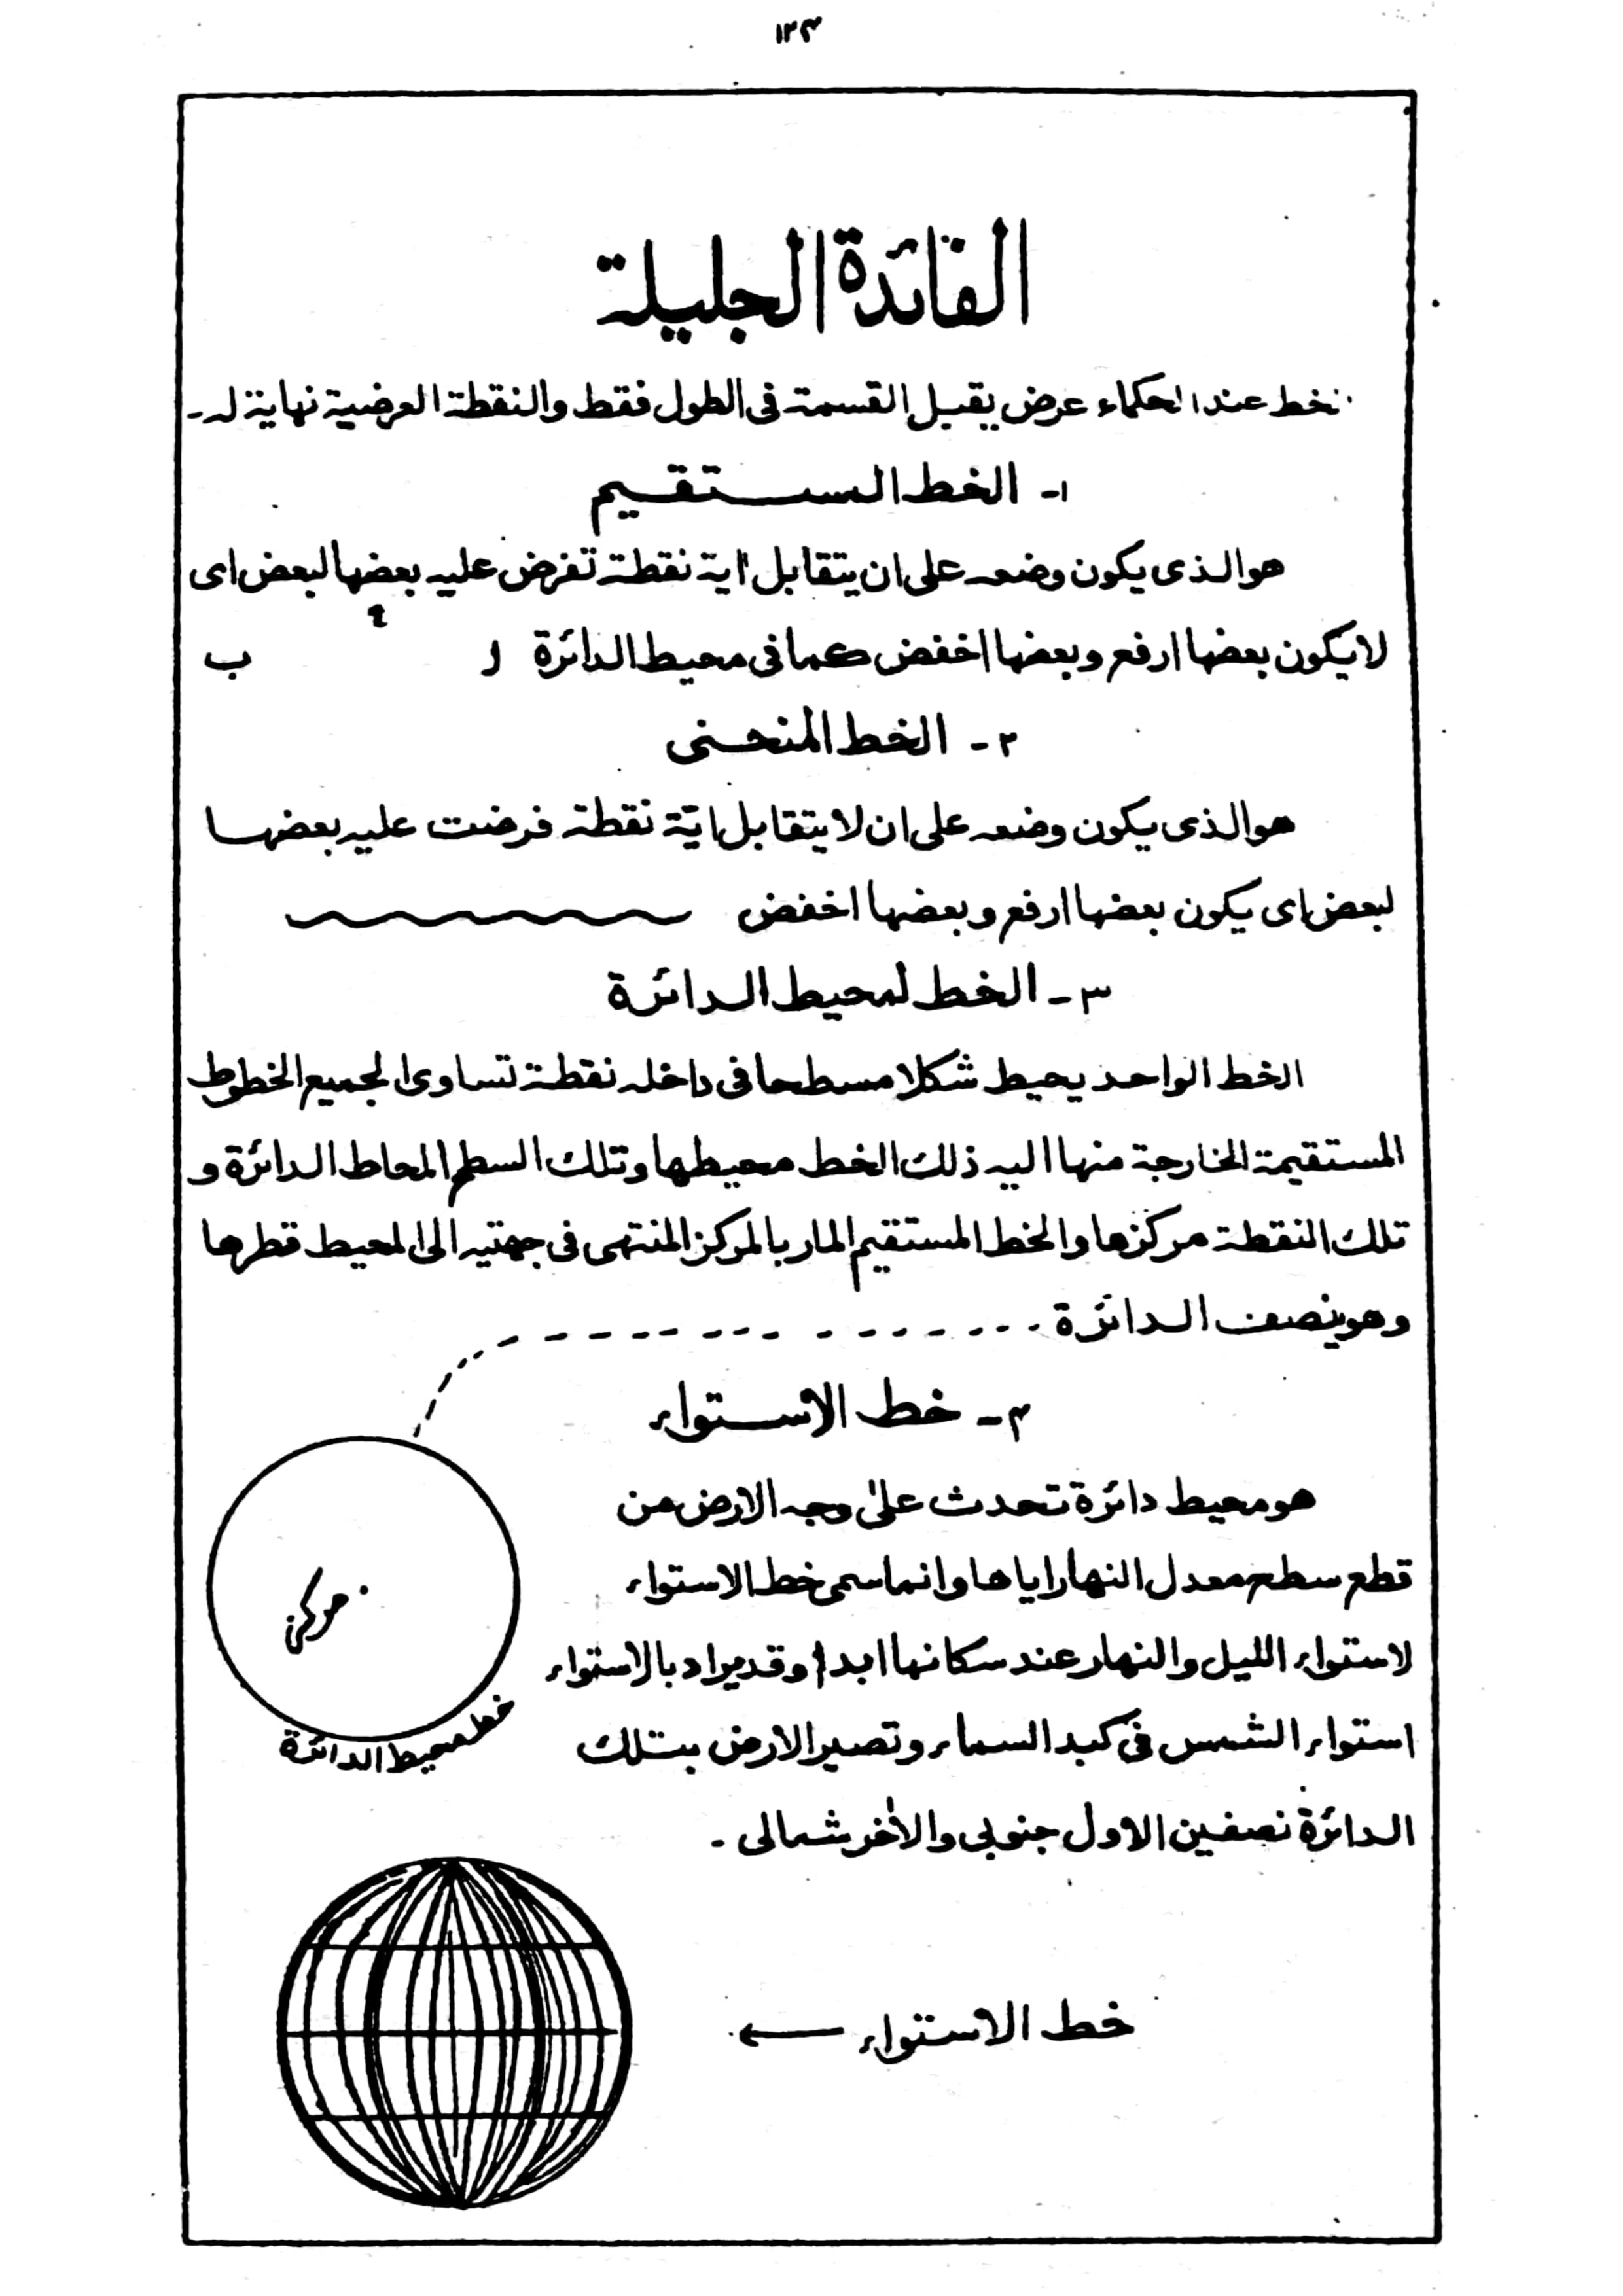 ١٣٣
الفائدة الجليلة
الخط عند الحكماء عرض يقبل القسمة فى الطول فقط والنقطة العرضية نهاية له
١- الخط المستقيم
هو الذى يكون وضعه على ان يتقابل اية نقطة تفرض عليه بعضها لبعض اى
لا يكون بعضها ارفع وبعضها اخفض كما فى محيط الدائرة ا ب
٢- الخط المنحنى
هو الذى يكون وضعه على ان لا يتقابل ايّة نقطة فرضت عليه بعضها
لبعض اى يكون بعضها ارفع وبعضها اخفض
٣- الخط لمحيط الدائرة
الخط الواحد يحيط شكلا مسطحا فى داخله نقطة تساوى لجميع الخطوط
المستقيمة الخارجة منها اليه ذلك الخط محيطها وتلك السطح المحاط الدائرة و
تلك النقطة مركزها والخط المستقيم المار بالمركز المنتهى فى جهتيه الى المحيط قطرها
وهو ينصف الدائرة
٤- خط الاستواء
هو محيط دائرة تحدث على وجه الارض من
قطع سطح معدل النهار اياها وانما سمى خط الاستواء
لاستواء الليل والنهار عند سكانها ابدا وقد يراد بالاستواء
استواء الشمس فى كبد السماء وتصير الارض بتلك
الدائرة نصفين الاول جنوبى والأخر شمالى -
مركز
خط محيط الدائرة
خط الاستواء